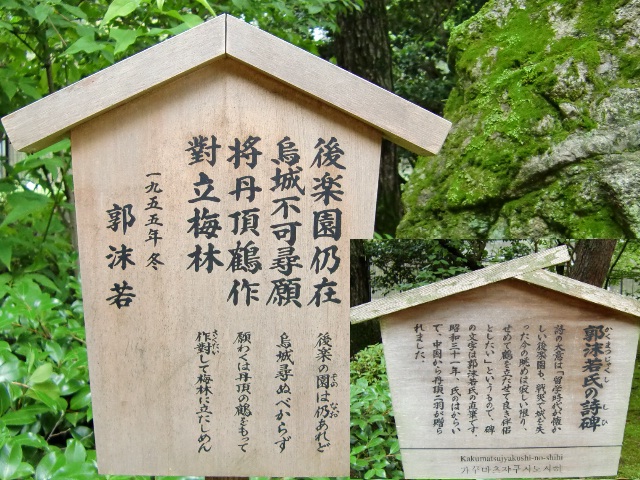 後楽園仍在
烏城不可尋願
将丹頂鶴作
對立梅林
一九五五年冬
郭沫若
後楽の園は仍あれど
なお
烏城尋ぬべからず
願わくは丹頂の鶴をもって
作對して梅林に立たしめん
さくたい
郭沫若氏の詩碑
かくまつじゃくし
しひ
詩の大意は「留学時代が懐か
しい後楽園も、戦災で城を失
った今の眺めは寂しい限り、
せめて鶴をたたせて良き伴侶
としたい」というもので、碑
の文字は郭沫若氏の直筆です。
昭和三十一年、氏のはからい
で、中国から丹頂二羽が贈ら
れました。
Kakumatsujyakushi-no-shihi